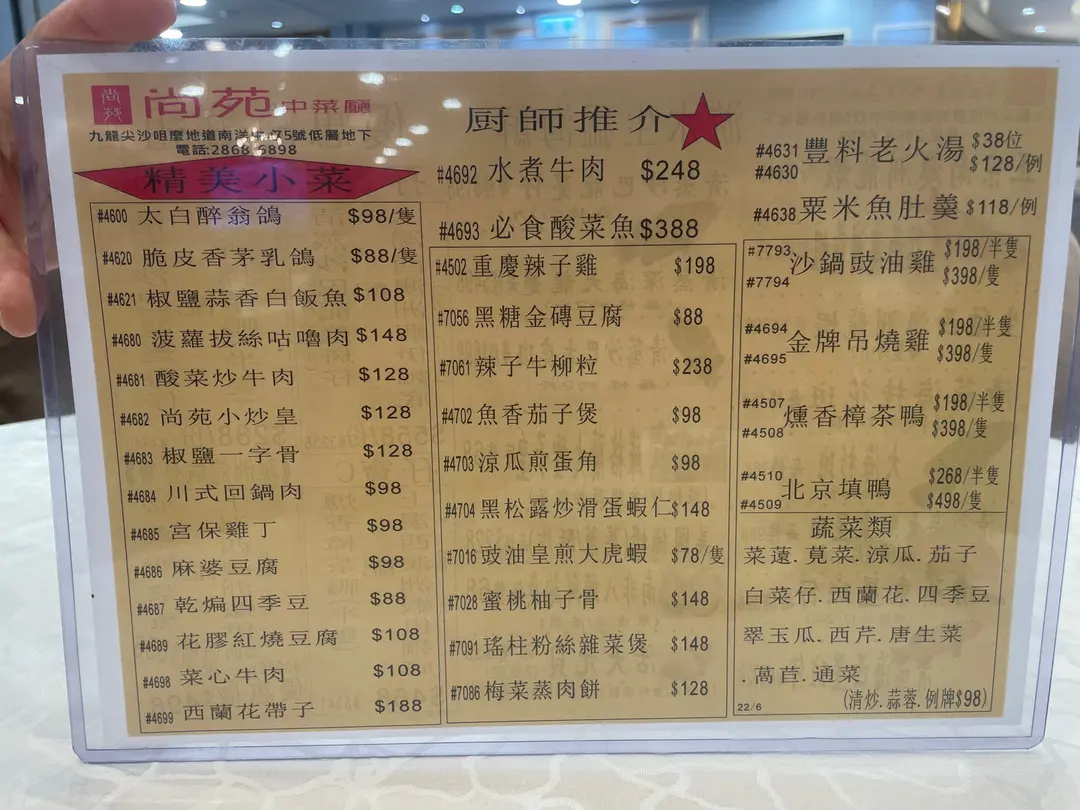 尚苑
尚苑中菜廳
九龍尖沙咀麼地道南洋中心5號低層地下
電話:2868 6898
精美小菜
#4600 太白醉翁鴿 $98/隻
#4620 脆皮香茅乳鴿 $88/隻
#4621 椒鹽蒜香白飯魚 $108
#4680 菠蘿拔絲咕嚕肉 $148
#4681 酸菜炒牛肉 $128
#4682 尚苑小炒皇 $128
#4683 椒鹽一字骨 $128
#4684 川式回鍋肉 $98
#4685 宮保雞丁 $98
#4686 麻婆豆腐 $98
#4687 乾煸四季豆 $88
#4689 花膠紅燒豆腐 $108
#4698 菜心牛肉 $108
#4699 西蘭花帶子 $188
厨師推介
#4692 水煮牛肉 $248
#4693 必食酸菜魚 $388
#4502 重慶辣子雞 $198
#7056 黑糖金磚豆腐 $88
#7061 辣子牛柳粒 $238
#4702 魚香茄子煲 $98
#4703 涼瓜煎蛋角 $98
#4704 黑松露炒滑蛋蝦仁 $148
#7016 豉油皇煎大虎蝦 $78/隻
#7028 蜜桃柚子骨 $148
#7091 瑤柱粉絲雜菜煲 $148
#7086 梅菜蒸肉餅 $128
#4631 豐料老火湯 $38位
#4630 $128/例
#4638 粟米魚肚羹 $118/例
#7793 沙鍋豉油雞 $198/半隻
#7794 $398/隻
#4694 金牌吊燒雞 $198/半隻
#4695 $398/隻
#4507 燻香樟茶鴨 $198/半隻
#4508 $398/隻
#4510 北京填鴨 $268/半隻
#4509 $498/隻
蔬菜類
菜薳.莧菜.涼瓜.茄子
白菜仔.西蘭花.四季豆
翠玉瓜.西芹.唐生菜
.萵苣.通菜
(清炒.蒜蓉.例牌$98)
22/6